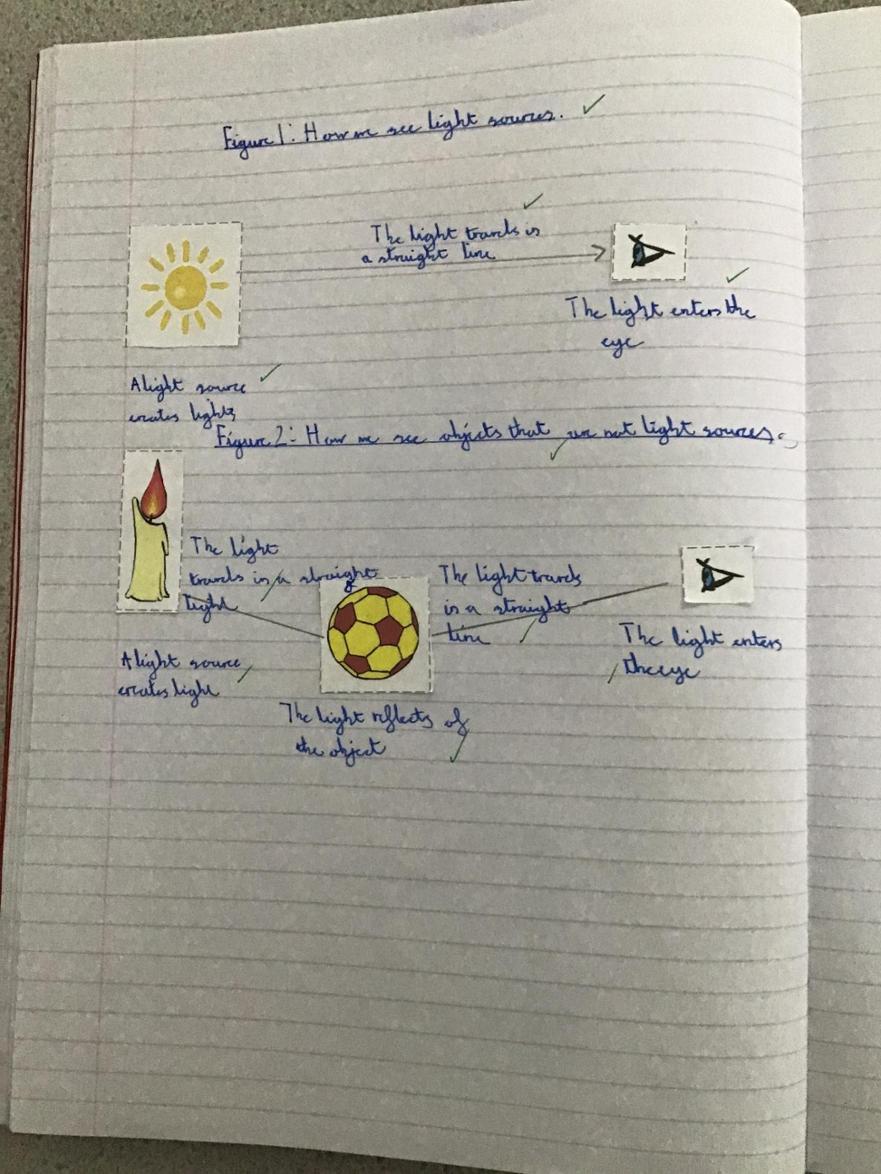 Figure 1: How we see light sources.
The light travels in
a straight line
The light enters the
eye
A light source
creates light
Figure 2: How we see objects that are not light sources.
The light
travels in a straight
light
The light travels
in a straight
line
The light enters
the eye
A light source
creates light
The light reflects of
the object